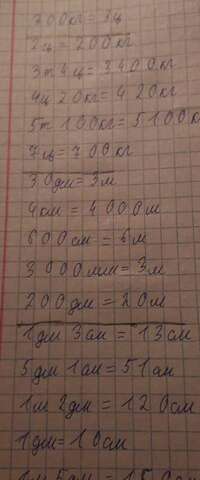 300кг = 3ц
2ц = 200кг
3т 4ц = 3400кг
4ц 20кг = 420кг
5т 100кг = 5100к
7ц = 700кг
30дм = 3м
4км = 4000м
600см = 6м
3000мм = 3м
200дм = 20м
1дм 3см = 13см
5дм 1см = 51см
1м 2дм = 120см
1дм = 10см
1м 5дм = 150см